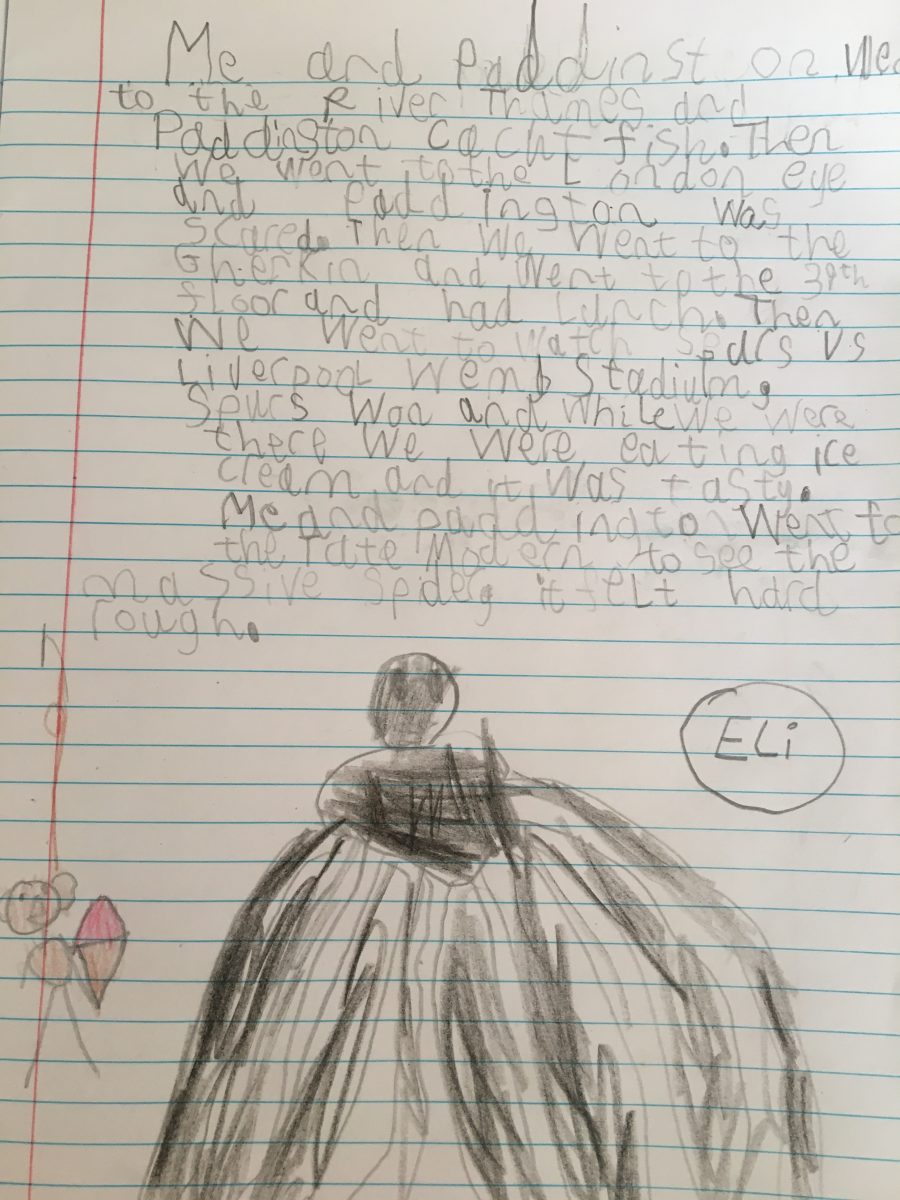 Me and Paddinst on We
to the River Thames and
Paddington cacht fish. Then
We went to the London eye
and Paddington was
Scared. Then We Went to the
Gherkin and Went to the 39th
floor and had Lunch. Then
We Went to watch Spurs Vs
Liverpool Wemb Stadium.
Spurs Won and While We were
there We Were eating ice
cream and it Was tasty.
Me and padd ington Went to
the Tate Modern to see the
massive spider, it felt hard
rough.
ELi